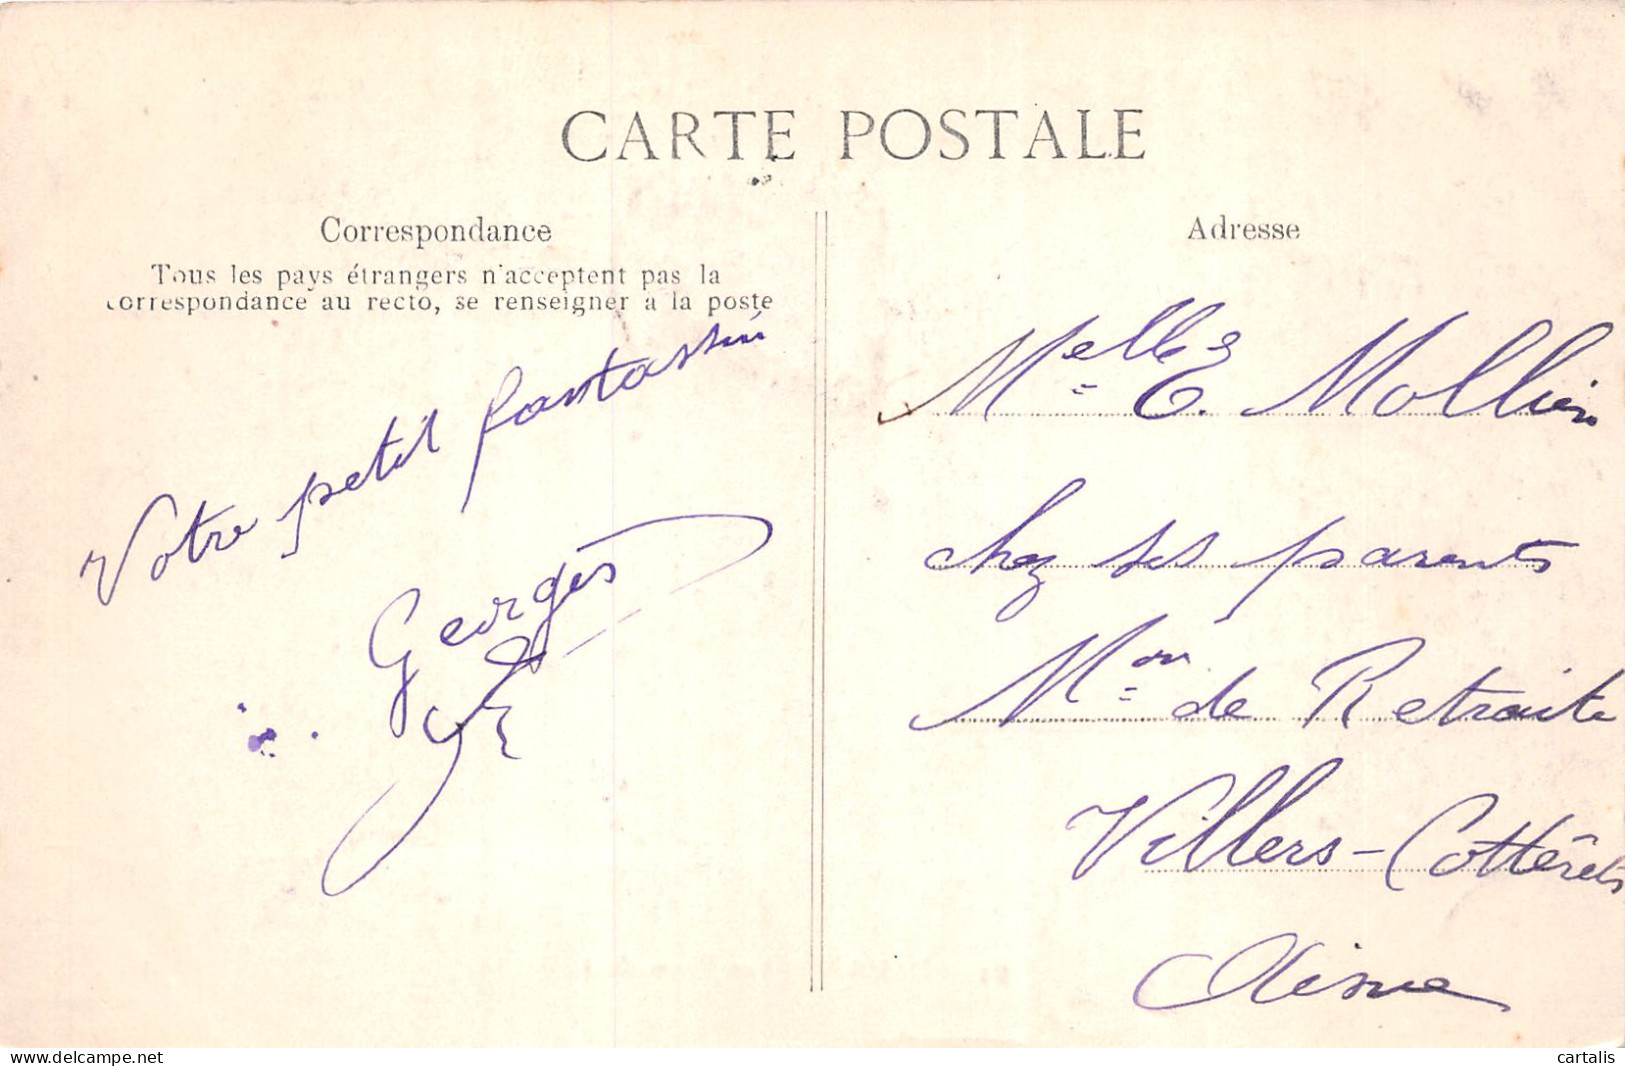 CARTE POSTALE
Correspondance
Tous les pays étrangers n'acceptent pas la
correspondance au recto, se renseigner à la poste
Votre petit fantassin
Georges
Adresse
Melle E. Mollien
chez ses parents
Mon de Retraite
Villers-Cotterêts
Aisne
delcampe.net
cartalis